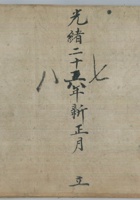 光緒二十五六年新正月 立
七
八